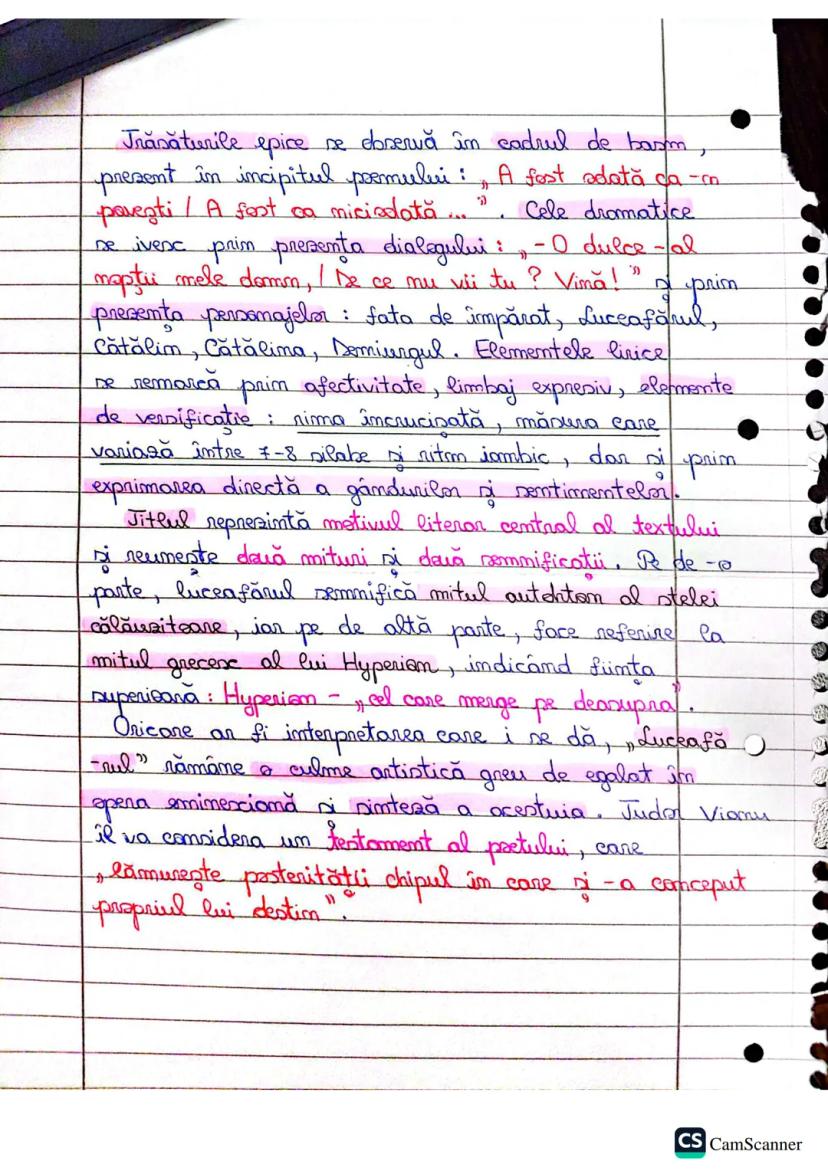 Trăsăturile epice se observă în cadrul de basm,
prezent în incipitul poemului: „A fost odată ca-n
povești / A fost ca niciodată..." . Cele dramatice
se ivesc prin prezența dialogului: „-O dulce-al
nopții mele domn, / De ce nu vii tu? Vină!" și prin
prezența personajelor: fata de împărat, Luceafărul,
Cătălin, Cătălina, Demiurgul. Elementele lirice
se remarcă prin afectivitate, limbaj expresiv, elemente
de versificație: rima încrucișată, măsura care
variază între 7-8 silabe și ritm iambic, dar și prin
exprimarea directă a gândurilor și sentimentelor.
Titlul reprezintă motivul literar central al textului
și reunește două mituri și două semnificații. Pe de-o
parte, luceafărul semnifică mitul autohton al stelei
călăuzitoare, iar pe de altă parte, face referire la
mitul grecesc al lui Hyperion, indicând ființa
superioară: Hyperion - „cel care merge pe deasupra".
Oricare ar fi interpretarea care i se dă, „Luceafă
-rul" rămâne o culme artistică greu de egalat în
opera eminesciană și sinteză a acestuia. Tudor Vianu
îl va considera un testament al poetului, care
„lămurește posterității chipul în care și-a conceput
propriul lui destin".
CS CamScanner